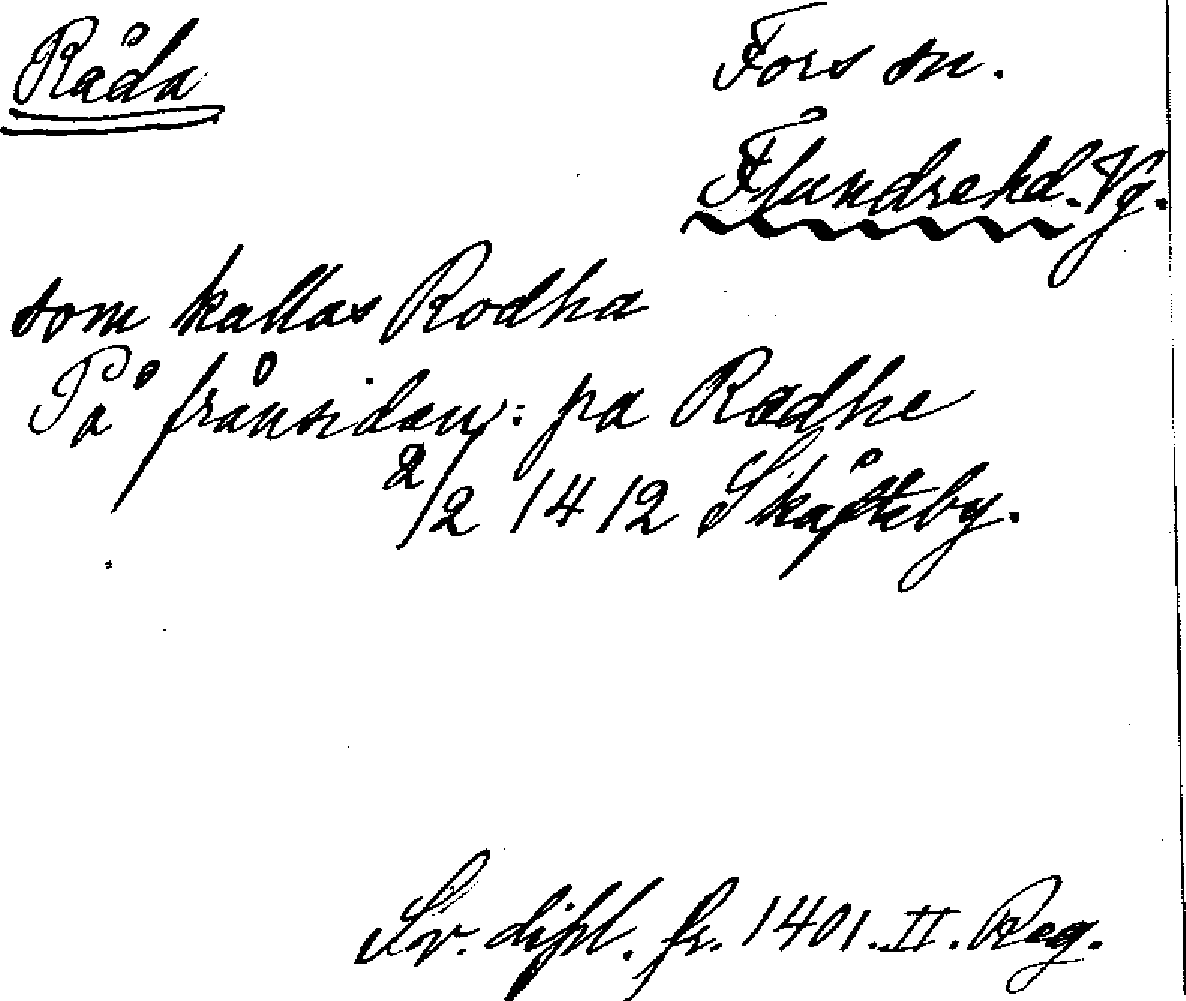 Råda
Fors sn.
Flundrehd. Vg.
som kallas Rodha
På frånsidan: pa Radhe
2/2 1412 Skåfteby.
Sv. dipl. fr. 1401. II. Reg.